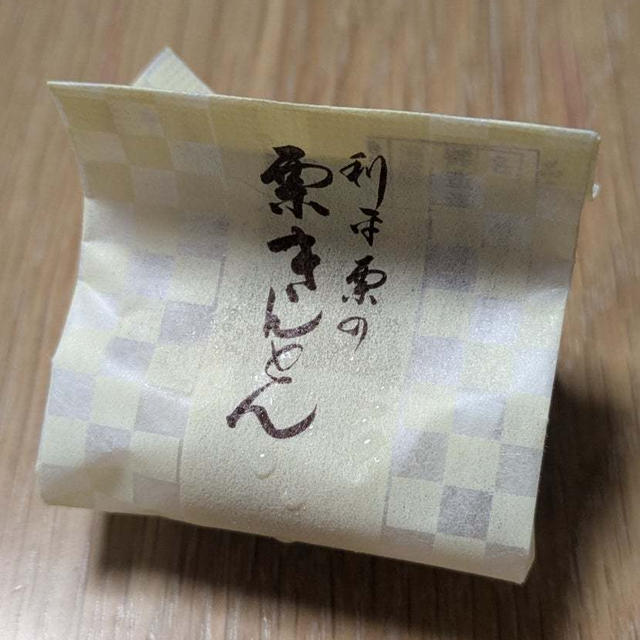 利平栗の
栗きんとん